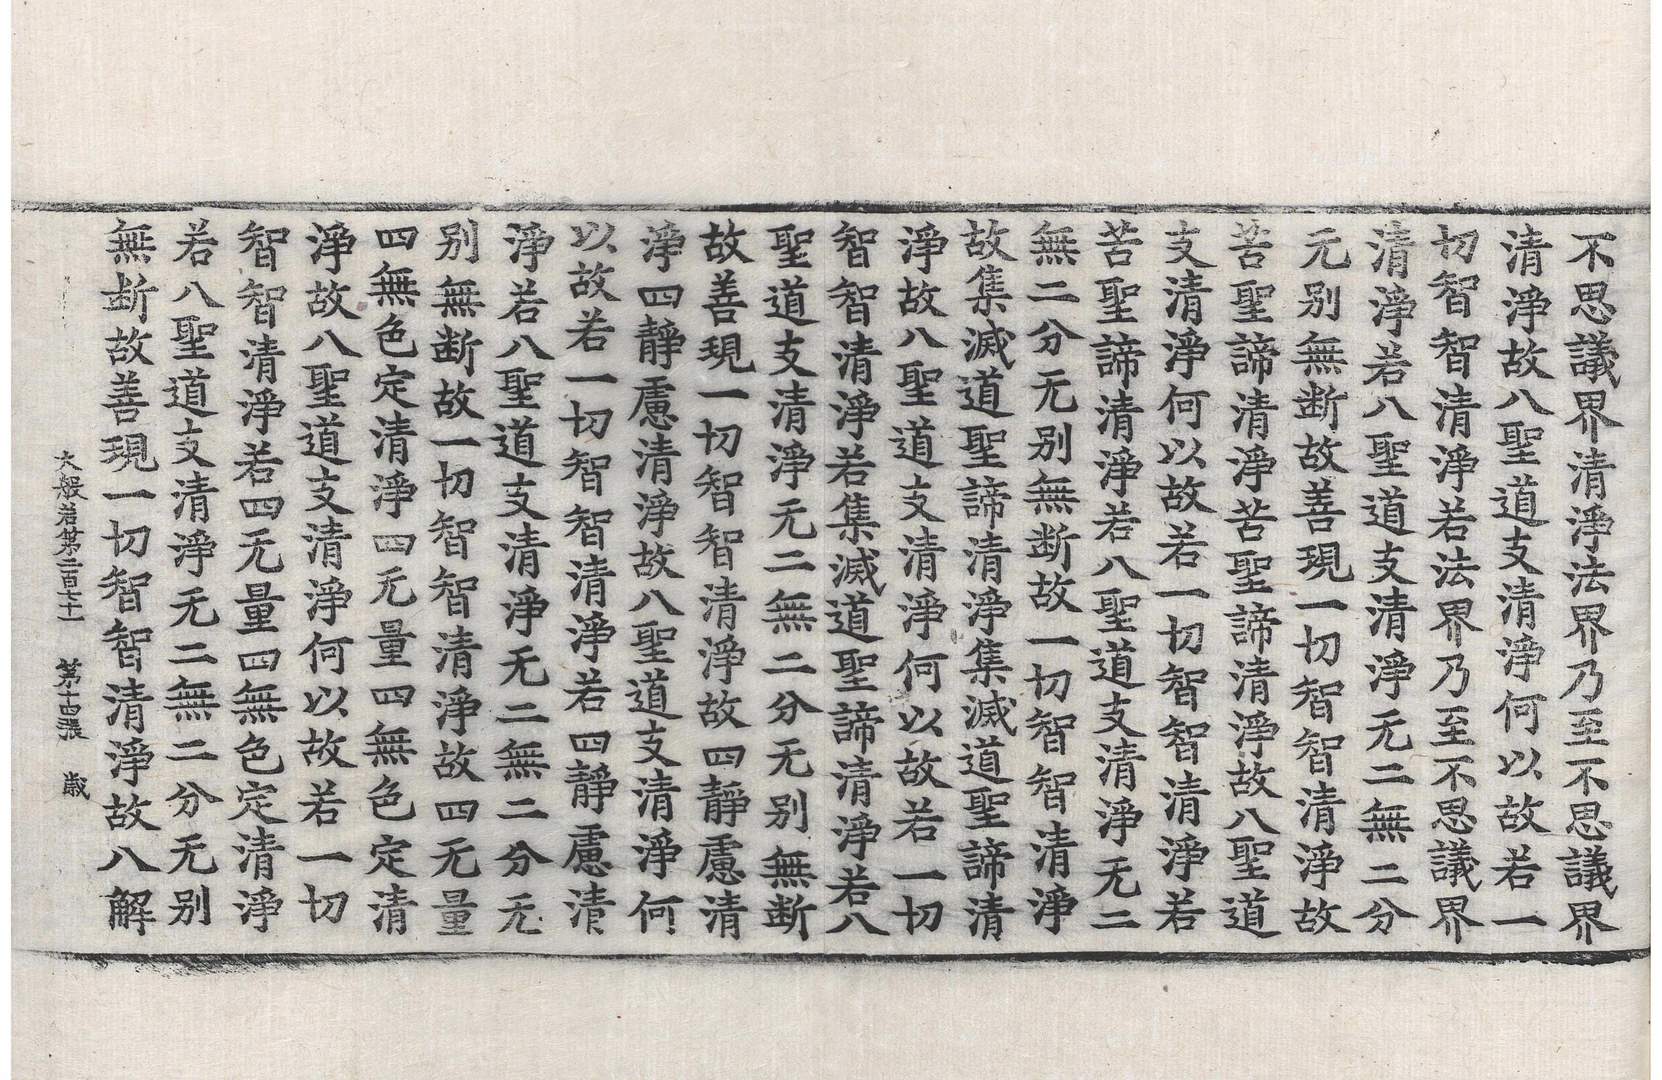 不思議界清淨法界乃至不思議界
清淨故八聖道支清淨何以故若一
切智智清淨若法界乃至不思議界
清淨若八聖道支清淨无二無二分
无别無断故善現一切智智清淨故
苦聖諦清淨苦聖諦清淨故八聖道
支清淨何以故若一切智智清淨若
苦聖諦清淨若八聖道支清淨无二
無二分无别無断故一切智智清淨
故集滅道聖諦清淨集滅道聖諦清
淨故八聖道支清淨何以故若一切
智智清淨若集滅道聖諦清淨若八
聖道支清淨无二無二分无别無断
故善現一切智智清淨故四靜慮清
淨四靜慮清淨故八聖道支清淨何
以故若一切智智清淨若四靜慮清
淨若八聖道支清淨无二無二分无
别無断故一切智智清淨故四无量
四無色定清淨四无量四無色定清
淨故八聖道支清淨何以故若一切
智智清淨若四无量四無色定清淨
若八聖道支清淨无二無二分无别
無断故善現一切智智清淨故八解
大般若第二百七十一 第十四張 歳